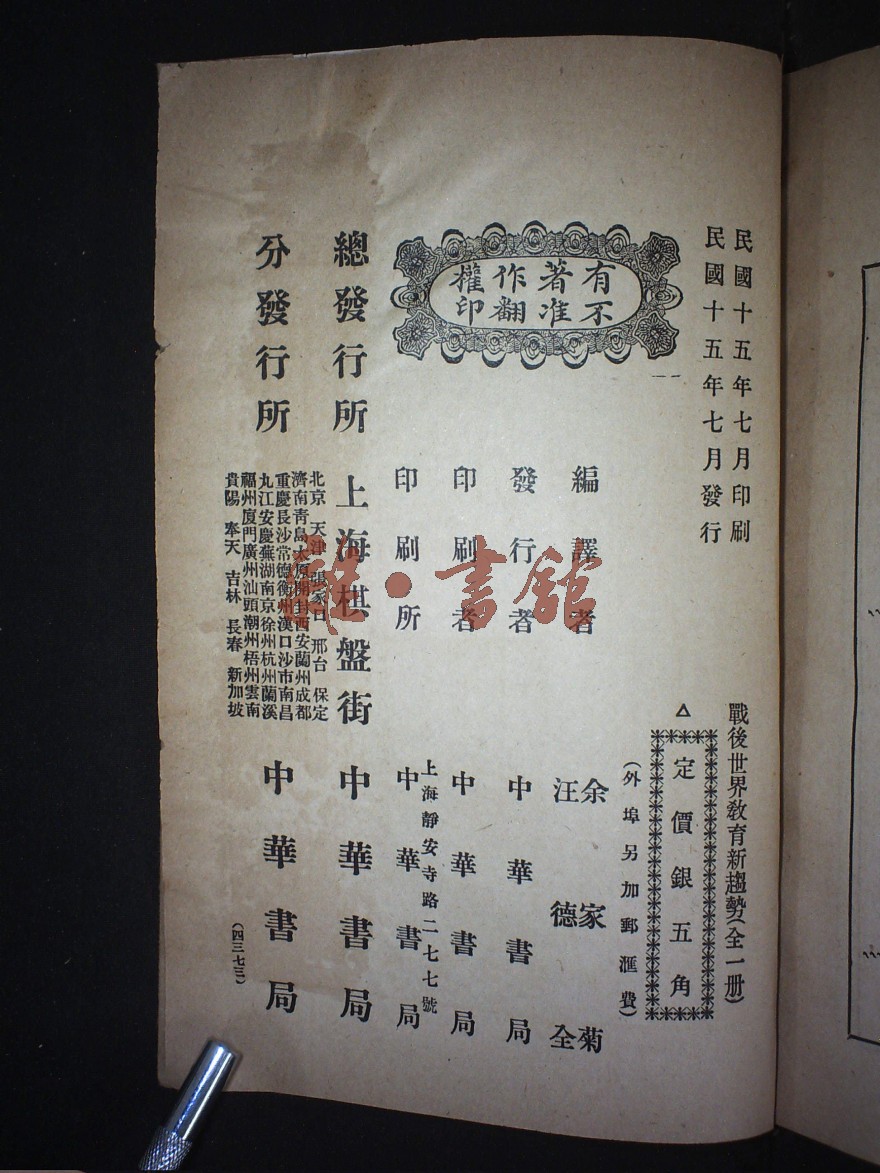 民國十五年七月印刷
民國十五年七月發行
有著作權
不准翻印
戰後世界教育新趨勢(全一册)
△定價銀五角
(外埠另加郵滙費)
編譯者 余家菊 汪德全
發行者 中華書局
印刷者 中華書局
上海靜安寺路二七七號
印刷所 中華書局
總發行所 上海棋盤街 中華書局
分發行所 中華書局
北京 天津 張家口 邢台 保定
濟南青島太原開封西安蘭州成都
重慶長沙常德衡州漢口沙市南昌
九江安慶蕪湖南京徐州杭州蘭溪
福州廈門廣州汕頭潮州梧州雲南
貴陽 奉天 吉林 長春 新加坡
(四三七三)